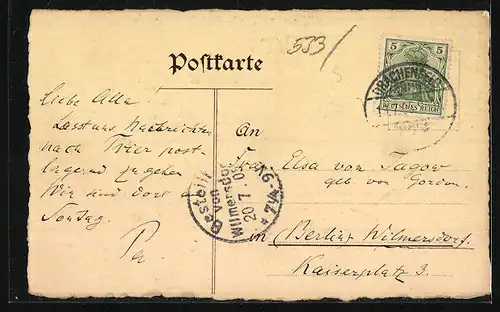 533/
Postkarte
5 5
DEUTSCHES REICH
Liebe Alla.
Lasst uns Nachrichten
nach Trier post-
lagernd zugehen
Wir sind dort
Sontag.
Pa
Bestellt
von
Wilmersdorf
20 7
7¼-9V.
An
Frau Elsa von Tagow
geb. von
in Berlin Wilmersdorf.
Kaiserplatz 3.